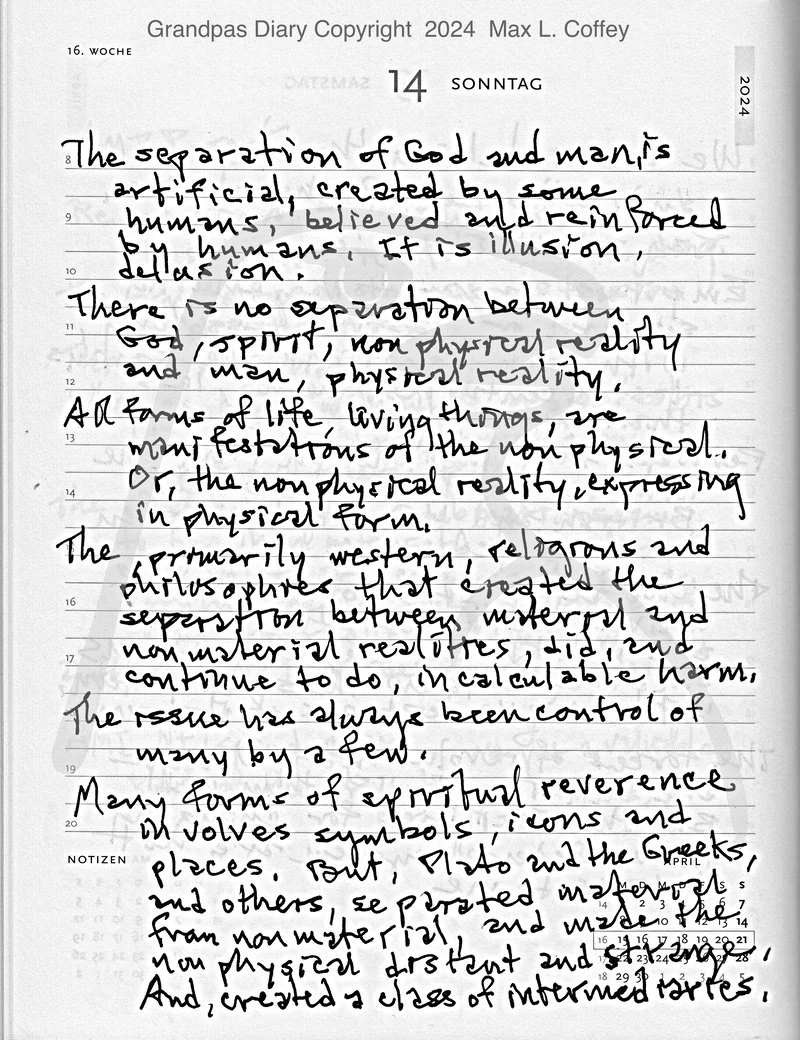 Grandpas Diary Copyright 2024 Max L. Coffey
16. WOCHE
14 SONNTAG
2024
8 The separation of God and man, is
artificial, created by some
9 humans, believed and reinforced
by humans. It is illusion,
10 dellusion.
There is no separation between
11 God, spirit, non physical reality
and man, physical reality.
12
All forms of life, living things, are
13 manifestations of the non physical.
Or, the nonphysical reality, expressing
14 in physical form.
The, primarily western, religions and
philosophies that created the
16 separation between material and
nonmaterial realities, did, and
17 continue to do, incalculable harm.
The issue has always been control of
many by a few.
19
Many forms of spiritual reverence
20 involves symbols, icons and
NOTIZEN places. But, Plato and the Greeks,
APRIL
and others, separated material
from nonmaterial, and made the
non physical distant and strange.
And, created a class of intermediaries.